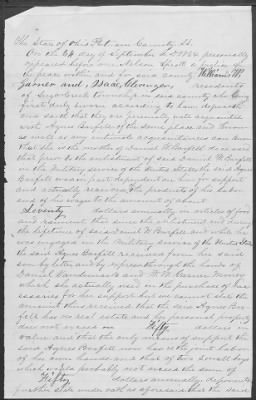 The State of Ohio Putnam County SS.
On the 6th day of September A.D. 1864 personally
appeared before me Nelson a Justice of
the peace within and for said county William W.
Garner and Isaac Clevenger, residents
of Sugar Creek township in said county who being
first duly sworn according to law depose
and said that they are personally well acquainted
with Agnes Barfell of the same place and know
as well as any such acquaintances can know
that she is the mother of Daniel W. Barfell deceased
that prior to the enlistment of said Daniel W. Barfell
in the Military service of the United States the said Agnes
Barfell was in part dependent on him for support
and actually received the products of his labor
and of his wages to the amount of about
Seventy dollars annually in articles of food
and raiment that since the enlistment and during
the lifetime of said Daniel W. Barfell and while he
was engaged in the Military service of the United States
the said Agnes Barfell received from her said
son by letter and by through the hands of
Daniel and W. W. Garner Money
which she actually used in the purchase of nec
essaries for her support but we cannot state the
amount thus received that the said Agnes Bar
fell has no real estate and her personal property
does not exceed in Fifty dollars in
value and that the only means of support the
said Agnes Barfell now has is the labor
of her own hands and that of two small boys
which would probably not exceed the sum of
Fifty dollars annually, deponents
further state under oath as aforesaid that the said